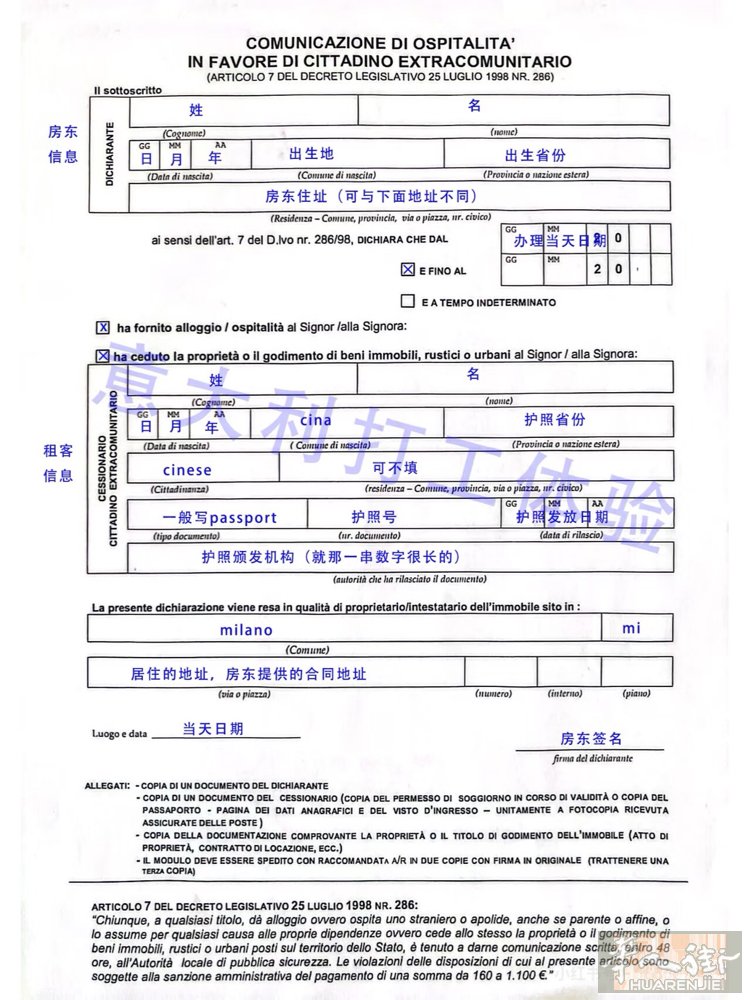 COMUNICAZIONE DI OSPITALITA'
IN FAVORE DI CITTADINO EXTRACOMUNITARIO
(ARTICOLO 7 DEL DECRETO LEGISLATIVO 25 LUGLIO 1998 NR. 286)
Il sottoscritto
房东
信息
DICHIARANTE
姓 名
(Cognome) (nome)
GG MM AA
日 月 年 出生地 出生省份
(Data di nascita) (Comune di nascita) (Provincia o nazione estera)
房东住址（可与下面地址不同）
(Residenza – Comune, provincia, via o piazza, nr. civico)
ai sensi dell'art. 7 del D.lvo nr. 286/98, DICHIARA CHE DAL
GG MM 2 0
办理当天日期
X E FINO AL
GG MM 2 0
E A TEMPO INDETERMINATO
X ha fornito alloggio / ospitalità al Signor /alla Signora:
X ha ceduto la proprietà o il godimento di beni immobili, rustici o urbani al Signor / alla Signora:
租客
信息
CESSIONARIO
CITTADINO EXTRACOMUNITARIO
姓 名
(Cognome) (nome)
GG MM AA
日 月 年 cina 护照省份
(Data di nascita) ( Comune di nascita) (Provincia o nazione estera)
cinese 可不填
(Cittadinanza) (residenza – Comune, provincia, via o piazza, nr. civico)
GG MM AA
一般写passport 护照号 护照发放日期
(tipo documento) (nr. documento) (data di rilascio)
护照颁发机构（就那一串数字很长的）
(autorità che ha rilasciato il documento)
意大利打工体验
La presente dichiarazione viene resa in qualità di proprietario/intestatario dell'immobile sito in :
milano mi
(Comune)
居住的地址，房东提供的合同地址
(via o piazza) (numero) (interno) (piano)
Luogo e data 当天日期
房东签名
firma del dichiarante
ALLEGATI: - COPIA DI UN DOCUMENTO DEL DICHIARANTE
- COPIA DI UN DOCUMENTO DEL CESSIONARIO (COPIA DEL PERMESSO DI SOGGIORNO IN CORSO DI VALIDITÀ O COPIA DEL
PASSAPORTO - PAGINA DEI DATI ANAGRAFICI E DEL VISTO D'INGRESSO – UNITAMENTE A FOTOCOPIA RICEVUTA
ASSICURATE DELLE POSTE )
- COPIA DELLA DOCUMENTAZIONE COMPROVANTE LA PROPRIETÀ O IL TITOLO DI GODIMENTO DELL'IMMOBILE (ATTO DI
PROPRIETÀ, CONTRATTO DI LOCAZIONE, ECC.)
- IL MODULO DEVE ESSERE SPEDITO CON RACCOMANDATA A/R IN DUE COPIE CON FIRMA IN ORIGINALE (TRATTENERE UNA
TERZA COPIA)
ARTICOLO 7 DEL DECRETO LEGISLATIVO 25 LUGLIO 1998 NR. 286:
"Chiunque, a qualsiasi titolo, dà alloggio ovvero ospita uno straniero o apolide, anche se parente o affine, o
lo assume per qualsiasi causa alle proprie dipendenze ovvero cede allo stesso la proprietà o il godimento di
beni immobili, rustici o urbani posti sul territorio dello Stato, è tenuto a darne comunicazione scritta, entro 48
ore, all'Autorità locale di pubblica sicurezza. Le violazioni delle disposizioni di cui al presente articolo sono
soggette alla sanzione amministrativa del pagamento di una somma da 160 a 1.100 €."
HUARENJIE